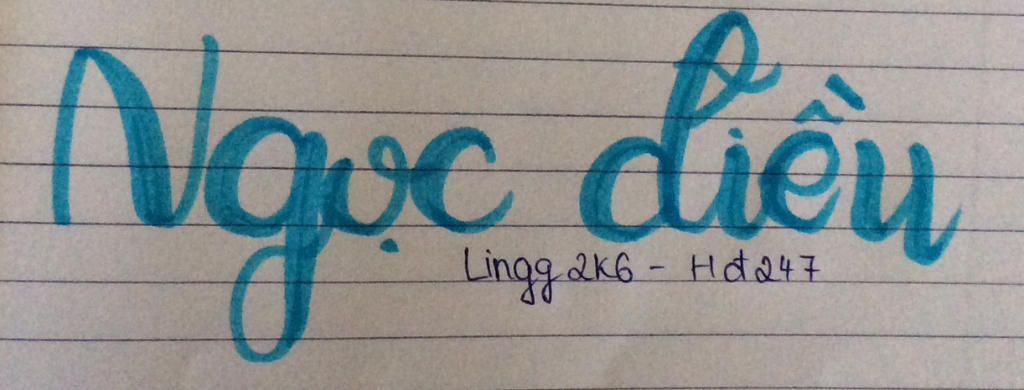 Ngọc diều
Lingg 2K6 - Hđ247